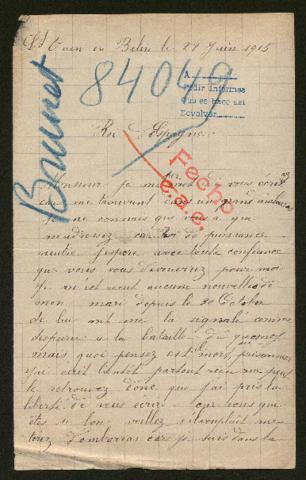 St Ouen en Belin le 27 Juin 1915
84049
A
Pedir informes
Que se hace así
Devolver
Baunet
Roi d'Espagne
Fecho
Monsieur je me permet de vous écrire
car me trouvant dans un grand
je ne connais que vous a qui
m'adresser car de puissance
autre j'espère avec toute confiance
que vous vous donnerez pour moi
Je n'ai reçu aucune nouvelles de
mon mari depuis le 30 Octobre
de lui ont me la signalé comme
disparu a la bataille du quesnoy
mais quoi pensez est mort, prisonnier
j'ai écrit partout rien ne peut
le retrouver donc que j'ai pris la
liberté de vous écrire car vous que
êtes si bon veuillez s'il vous plaît me
tirez d'embarras car je suis dans la